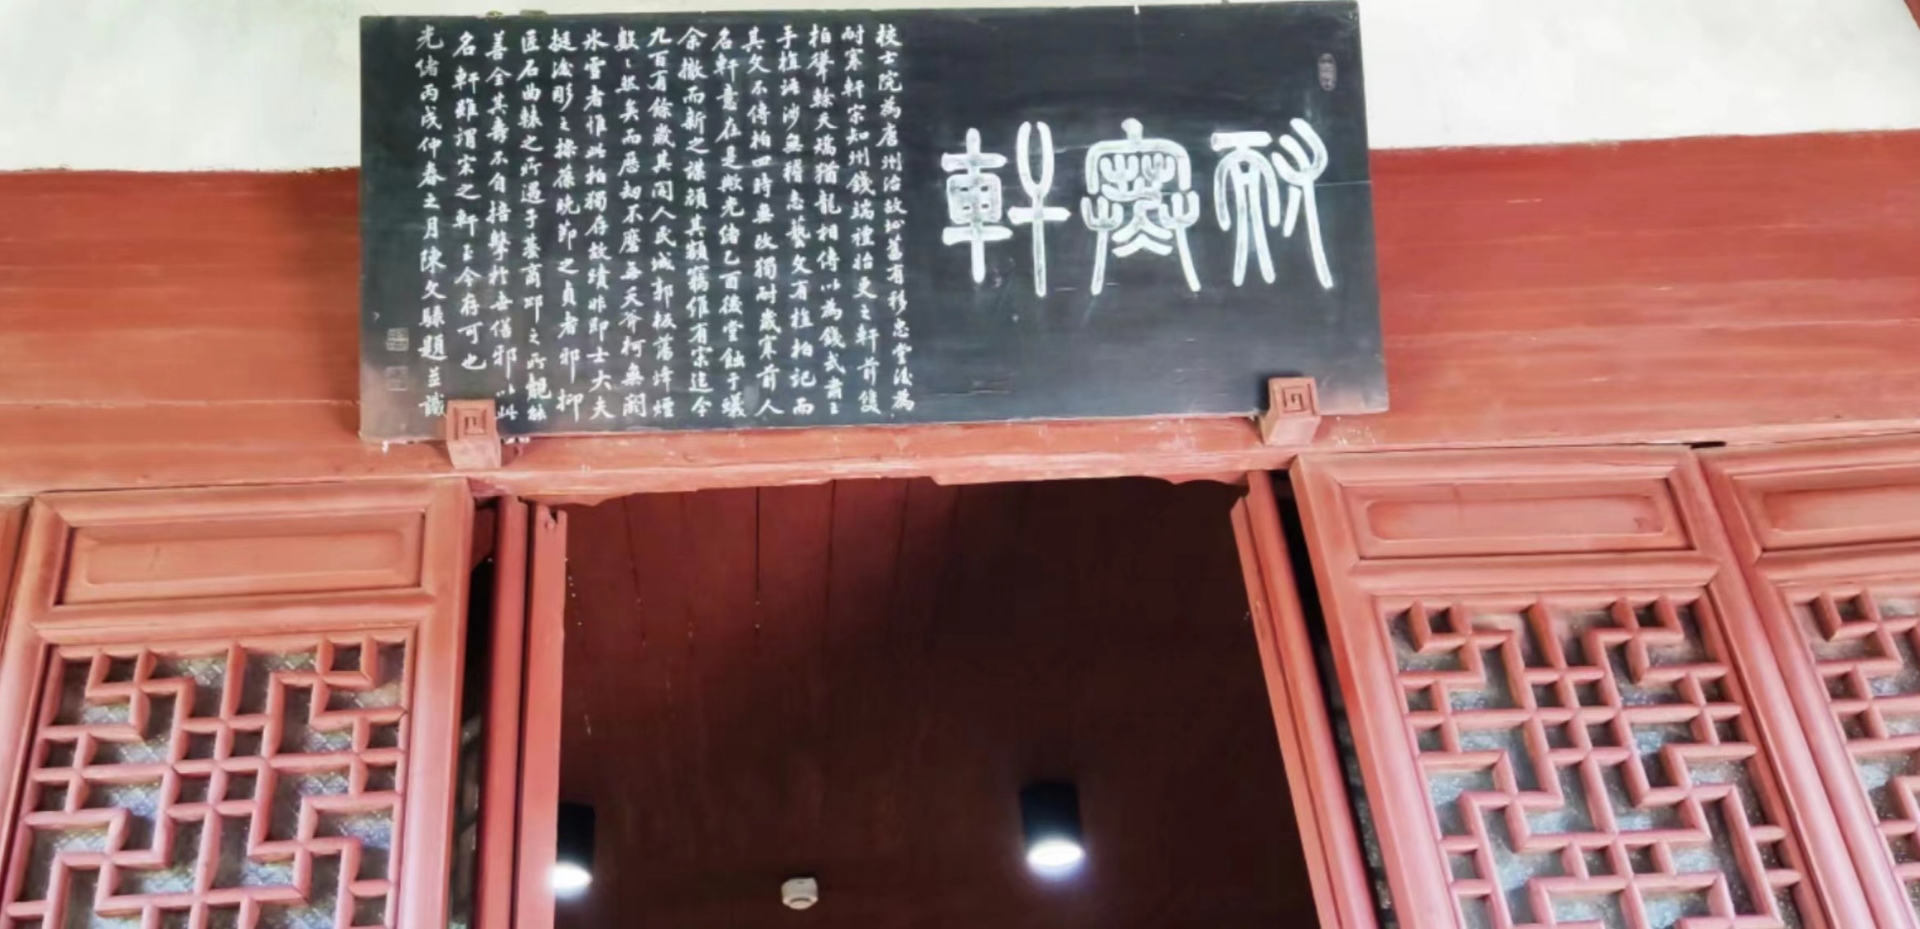 耐寒軒
校士院為唐州治故址舊有移忠堂後為
耐寒軒宋知州錢端禮始更之軒前雙
柏聳榦天矯猶龍相傳以為錢武肅王
手植語涉無稽忠藝文有植柏記而
其文不傳柏四時無改獨耐歲寒前人
名軒意在是歟光緒乙酉後堂蝕于蟻
余撤而新之謀顏其額竊惟有宋迄今
九百有餘歲其間人民城郭板蕩烽煙
數數然矣而歷劫不磨每天斧柯無闕
氷雪者惟此柏獨存故績非即士大夫
挺後彫之操葆晚節之貞者邪抑
匠石曲轅之所遇于綦商邱之所覩能
善全其壽不自掊擊於世俗邪以此
名軒雖謂宋之軒至今存可也
光緒丙戌仲春之月陳文騄題並識